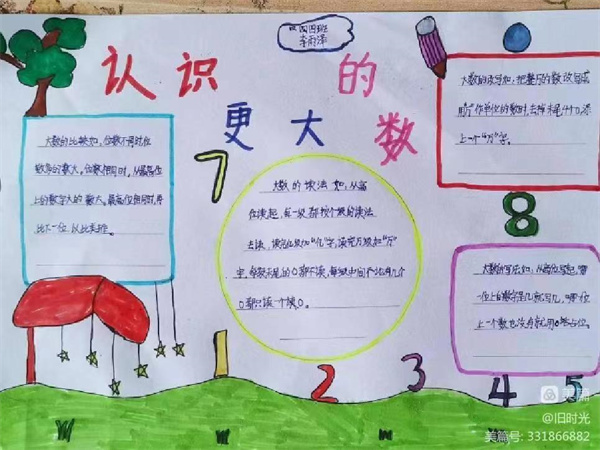 四四班
李雨泽
认识的
更大数
大数的比较如,位数不同时位
数多的数大。位数相同时,从最高位
上的数字大的数大。最高位相同时,再
比下一位,以此类推。
7
大数的读法如:从高
位读起,每一级都按个级的读法
去读,读完亿级加“亿”字,读完万级加“万”
字。每级末尾的0都不读,每级中间不论有几个
0都只读一个零0。
大数的改写如:把整万的数改写成
用“万”作单位的数时,去掉末尾4个0,添
上一个“万”字。
8
大数的写法如:从高位写起,哪
一位上的数字是几就写几,哪一位
上一个数也没有就用0来占位。
1
2
3
4
5
美篇
@旧时光
美篇号: 331866882